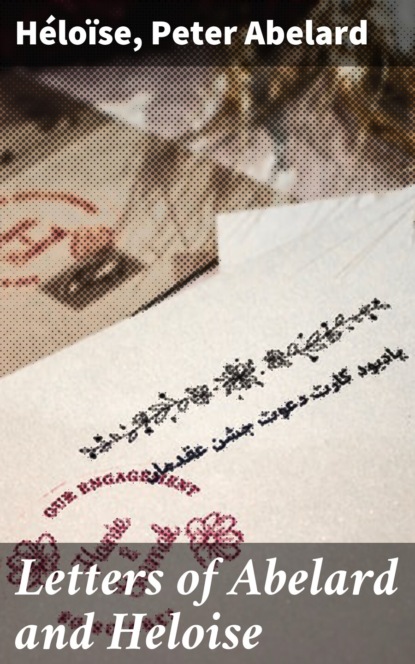 Héloïse, Peter Abelard
یادبود کارت دعوت جشن عقدمان
OUR ENGAGEMENT
&
Letters of Abelard
and Heloise